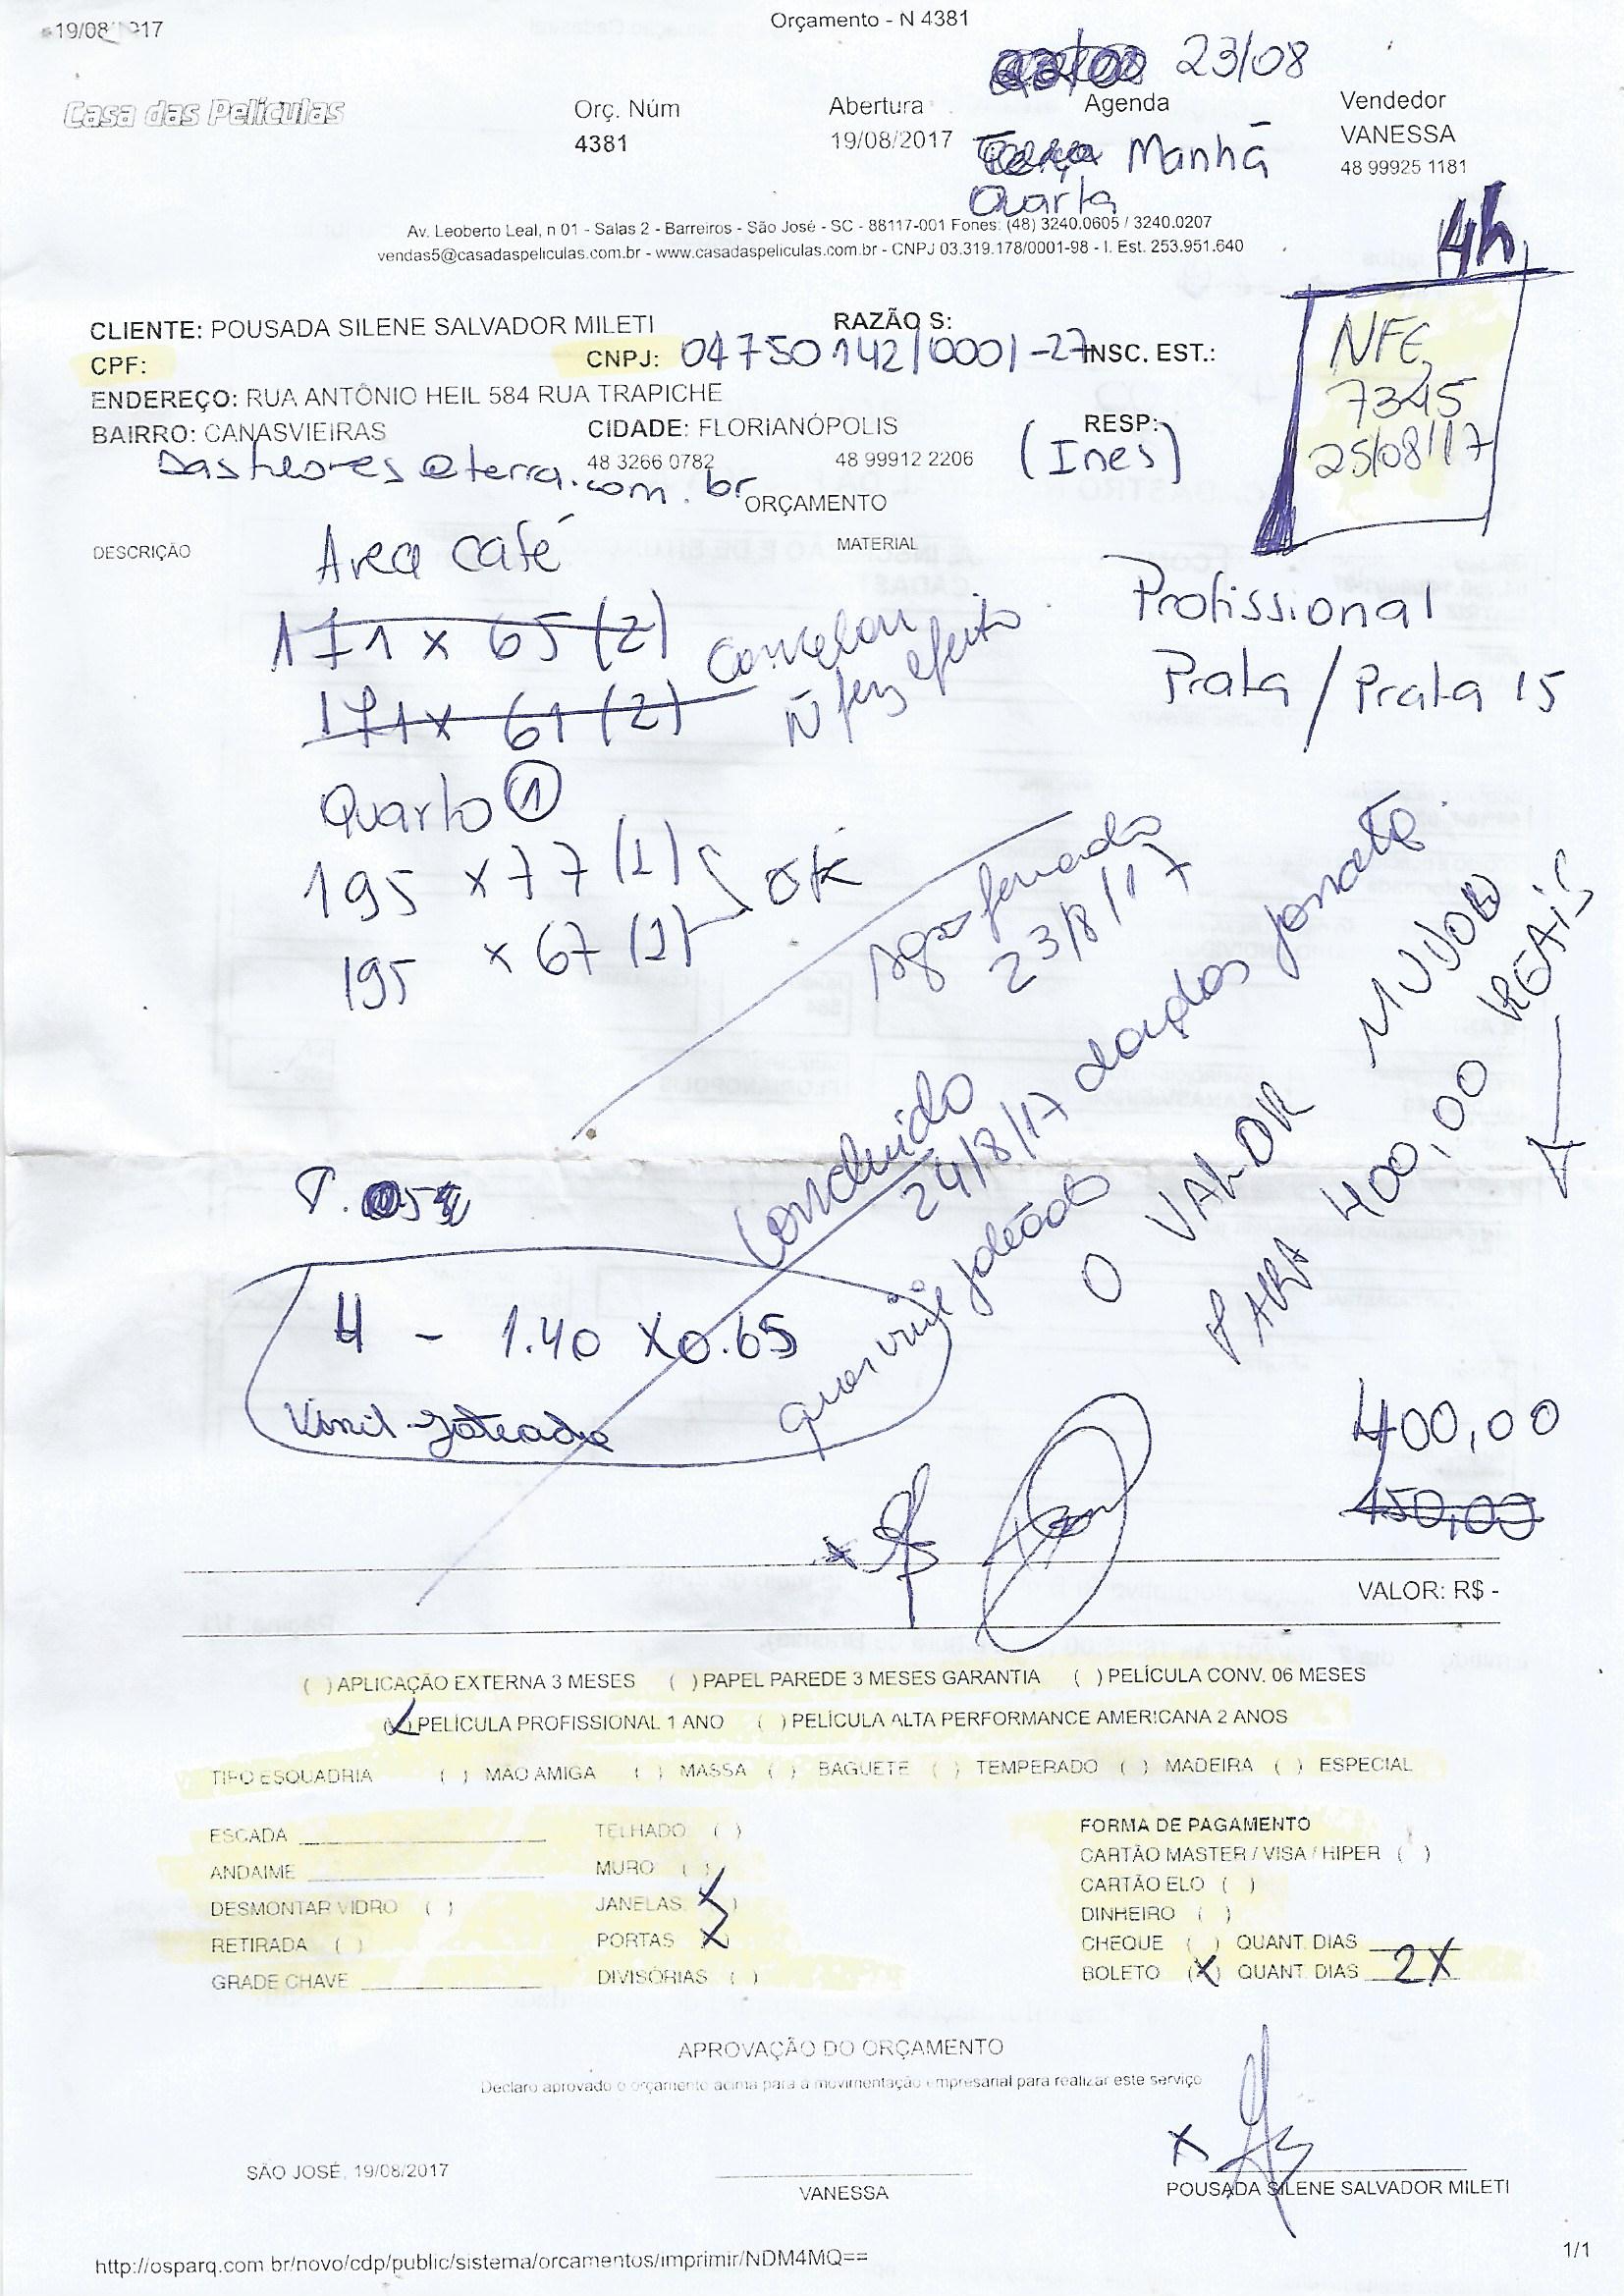 19/08/2017
Orçamento - N 4381
23/08
Casa das Películas
Orç. Núm
4381
Abertura
19/08/2017
Agenda
Manhã
Quarta
Vendedor
VANESSA
48 99925 1181
Av. Leoberto Leal, n 01 - Salas 2 - Barreiros - São José - SC - 88117-001 Fones: (48) 3240.0605 / 3240.0207
vendas5@casadaspeliculas.com.br - www.casadaspeliculas.com.br - CNPJ 03.319.178/0001-98 - I. Est. 253.951.640
4h
NFE
7345
25/08/17
CLIENTE: POUSADA SILENE SALVADOR MILETI RAZÃO S:
CPF: CNPJ: 04750142/0001-27 INSC. EST.:
ENDEREÇO: RUA ANTÔNIO HEIL 584 RUA TRAPICHE
BAIRRO: CANASVIEIRAS CIDADE: FLORIANÓPOLIS RESP:
48 3266 0782 48 99912 2206 (Ines)
@terra.com.br
ORÇAMENTO
DESCRIÇÃO MATERIAL
Area Café
171 x 65 (2)
171 x 61 (2)
Cancelou
Ñ fez efeito
Profissional
Prata / Prata 15
Quarto 1
195 x 77 (1)
195 x 67 (1)
OK
23/8/17
Concluido
24/8/17
O VALOR MUDOU
PARA 400,00 REAIS
4 - 1.40 x 0.65
Vinil Jateado
400,00
450,00
VALOR: R$ -
( ) APLICAÇÃO EXTERNA 3 MESES ( ) PAPEL PAREDE 3 MESES GARANTIA ( ) PELÍCULA CONV. 06 MESES
( ) PELÍCULA PROFISSIONAL 1 ANO ( ) PELÍCULA ALTA PERFORMANCE AMERICANA 2 ANOS
TIPO ESQUADRIA ( ) MÃO AMIGA ( ) MASSA ( ) BAGUETE ( ) TEMPERADO ( ) MADEIRA ( ) ESPECIAL
ESCADA TELHADO ( )
ANDAIME MURO ( )
DESMONTAR VIDRO ( ) JANELAS (X)
RETIRADA ( ) PORTAS (X)
GRADE CHAVE DIVISÓRIAS ( )
FORMA DE PAGAMENTO
CARTÃO MASTER / VISA / HIPER ( )
CARTÃO ELO ( )
DINHEIRO ( )
CHEQUE ( ) QUANT. DIAS
BOLETO (X) QUANT. DIAS 2X
APROVAÇÃO DO ORÇAMENTO
Declaro aprovado o orçamento acima para a movimentação empresarial para realizar este serviço
X
SÃO JOSÉ, 19/08/2017
VANESSA
POUSADA SILENE SALVADOR MILETI
http://osparq.com br/novo/cdp/public/sistema/orcamentos/imprimir/NDM4MQ==
1/1